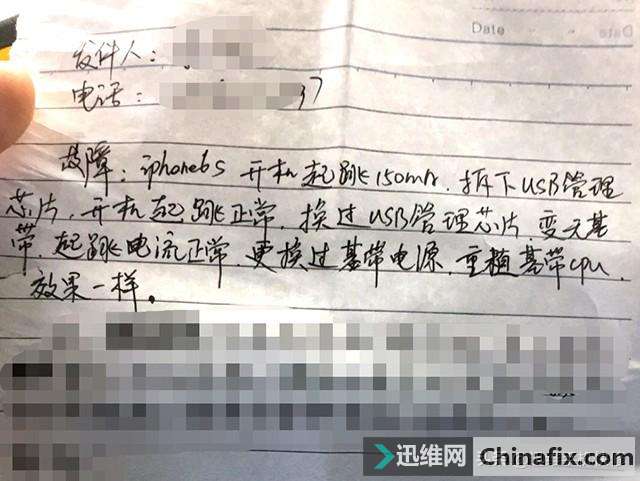 Date
Date
发件人:
电话:
37
故障:iphone6s 开机起跳150mA.拆下USB管理
芯片,开机起跳正常,换过USB管理芯片,变无基
带.起跳电流正常.更换过基带电源.重植基带cpu
效果一样。
迅维网
Chinafix.com